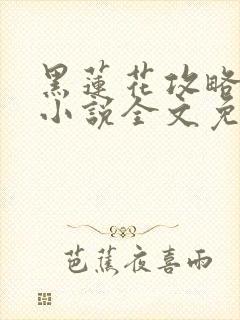 黑蓮花攻略
小說全文免
芭蕉夜喜雨